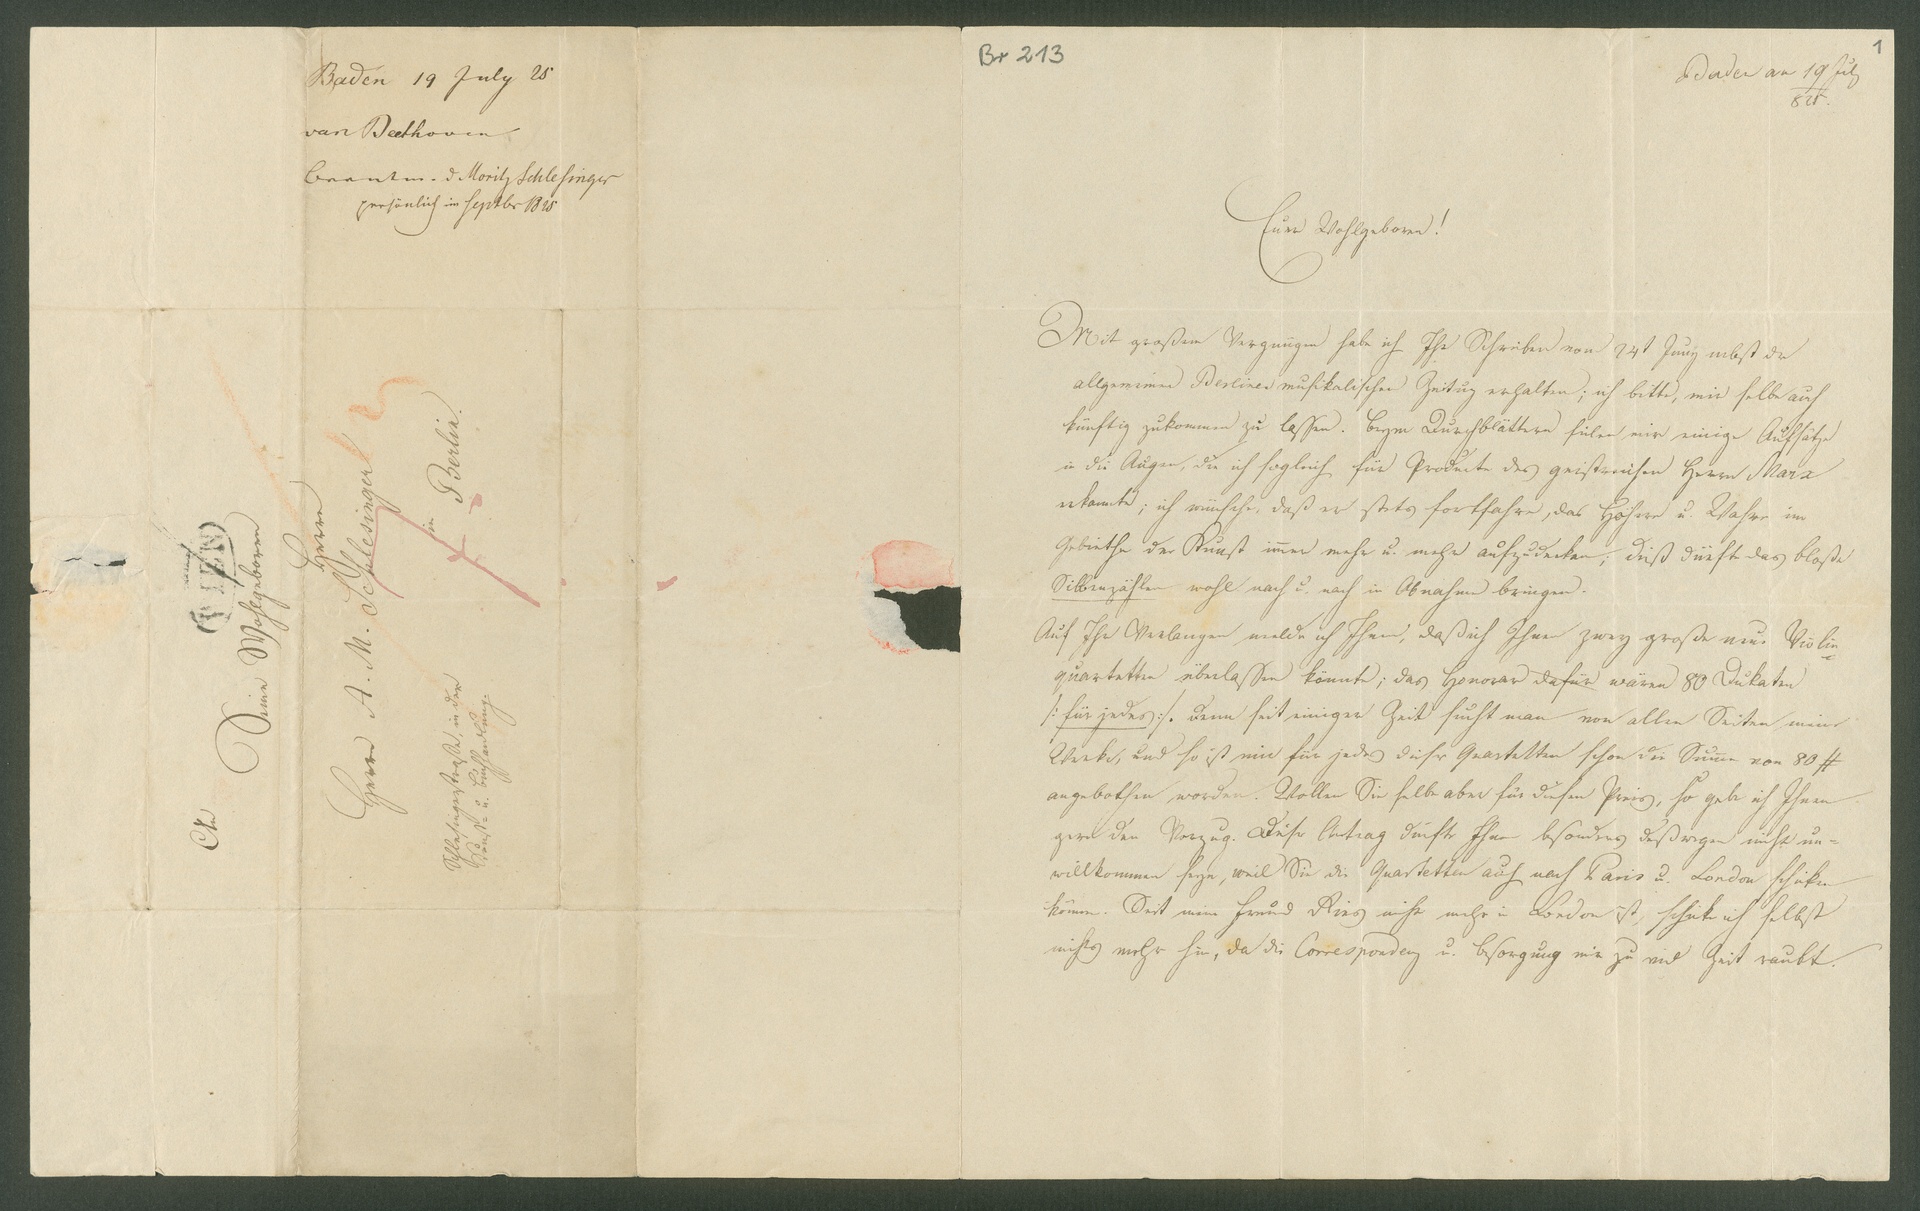 Baden 19 July 25
van Beethoven
beantw. d Moritz Schlesinger
persönlich im Septbr 1825
WIEN
An
Seine Wohlgeboren
Herrn
Herrn A. M. Schlesinger
in Berlin.
Schlesingerstraße, in der
Musik- u. Buchhandlung.
Br 213
1
Baden am 19 July
825.
Euer Wohlgeboren!
Mit großem Vergnügen habe ich Ihr Schreiben vom 24t Juny nebst der
allgemeinen Berliner musikalischen Zeitung erhalten; ich bitte, mir selbe auch
künftig zukommen zu lassen. Beym Durchblättern fielen mir einige Aufsätze
in die Augen, die ich sogleich für Producte des geistreichen Herrn Marx
erkannte; ich wünsche, daß er stets fortfahre, das Höhere u. Wahre im
Gebiethe der Kunst immer mehr u. mehr aufzudecken, dieß dürfte das bloße
Silbenzählen wohl nach u. nach in Abnahme bringen.
Auf Ihr Verlangen melde ich Ihnen, daß ich Ihnen zwey große neue Violin=
quartetten überlassen könnte; das Honorar dafür wären 80 Dukaten
/: für jedes :/. Denn seit einiger Zeit sucht man von allen Seiten meine
Werke, und so ist mir für jedes dieser Quartetten schon die Summe von 80 #
angebothen worden. Wollen Sie selbe aber für diesen Preis, so gebe ich Ihnen
gern den Vorzug. Dieser Antrag dürfte Ihnen besonders deßwegen nicht un=
willkommen seyn, weil Sie die Quartetten auch nach Paris u. London schicken
können. Seit mein Freund Ries nicht mehr in London ist, schicke ich selbst
nichts mehr hin, da die Correspondenz u. Besorgung mir zu viel Zeit raubt.